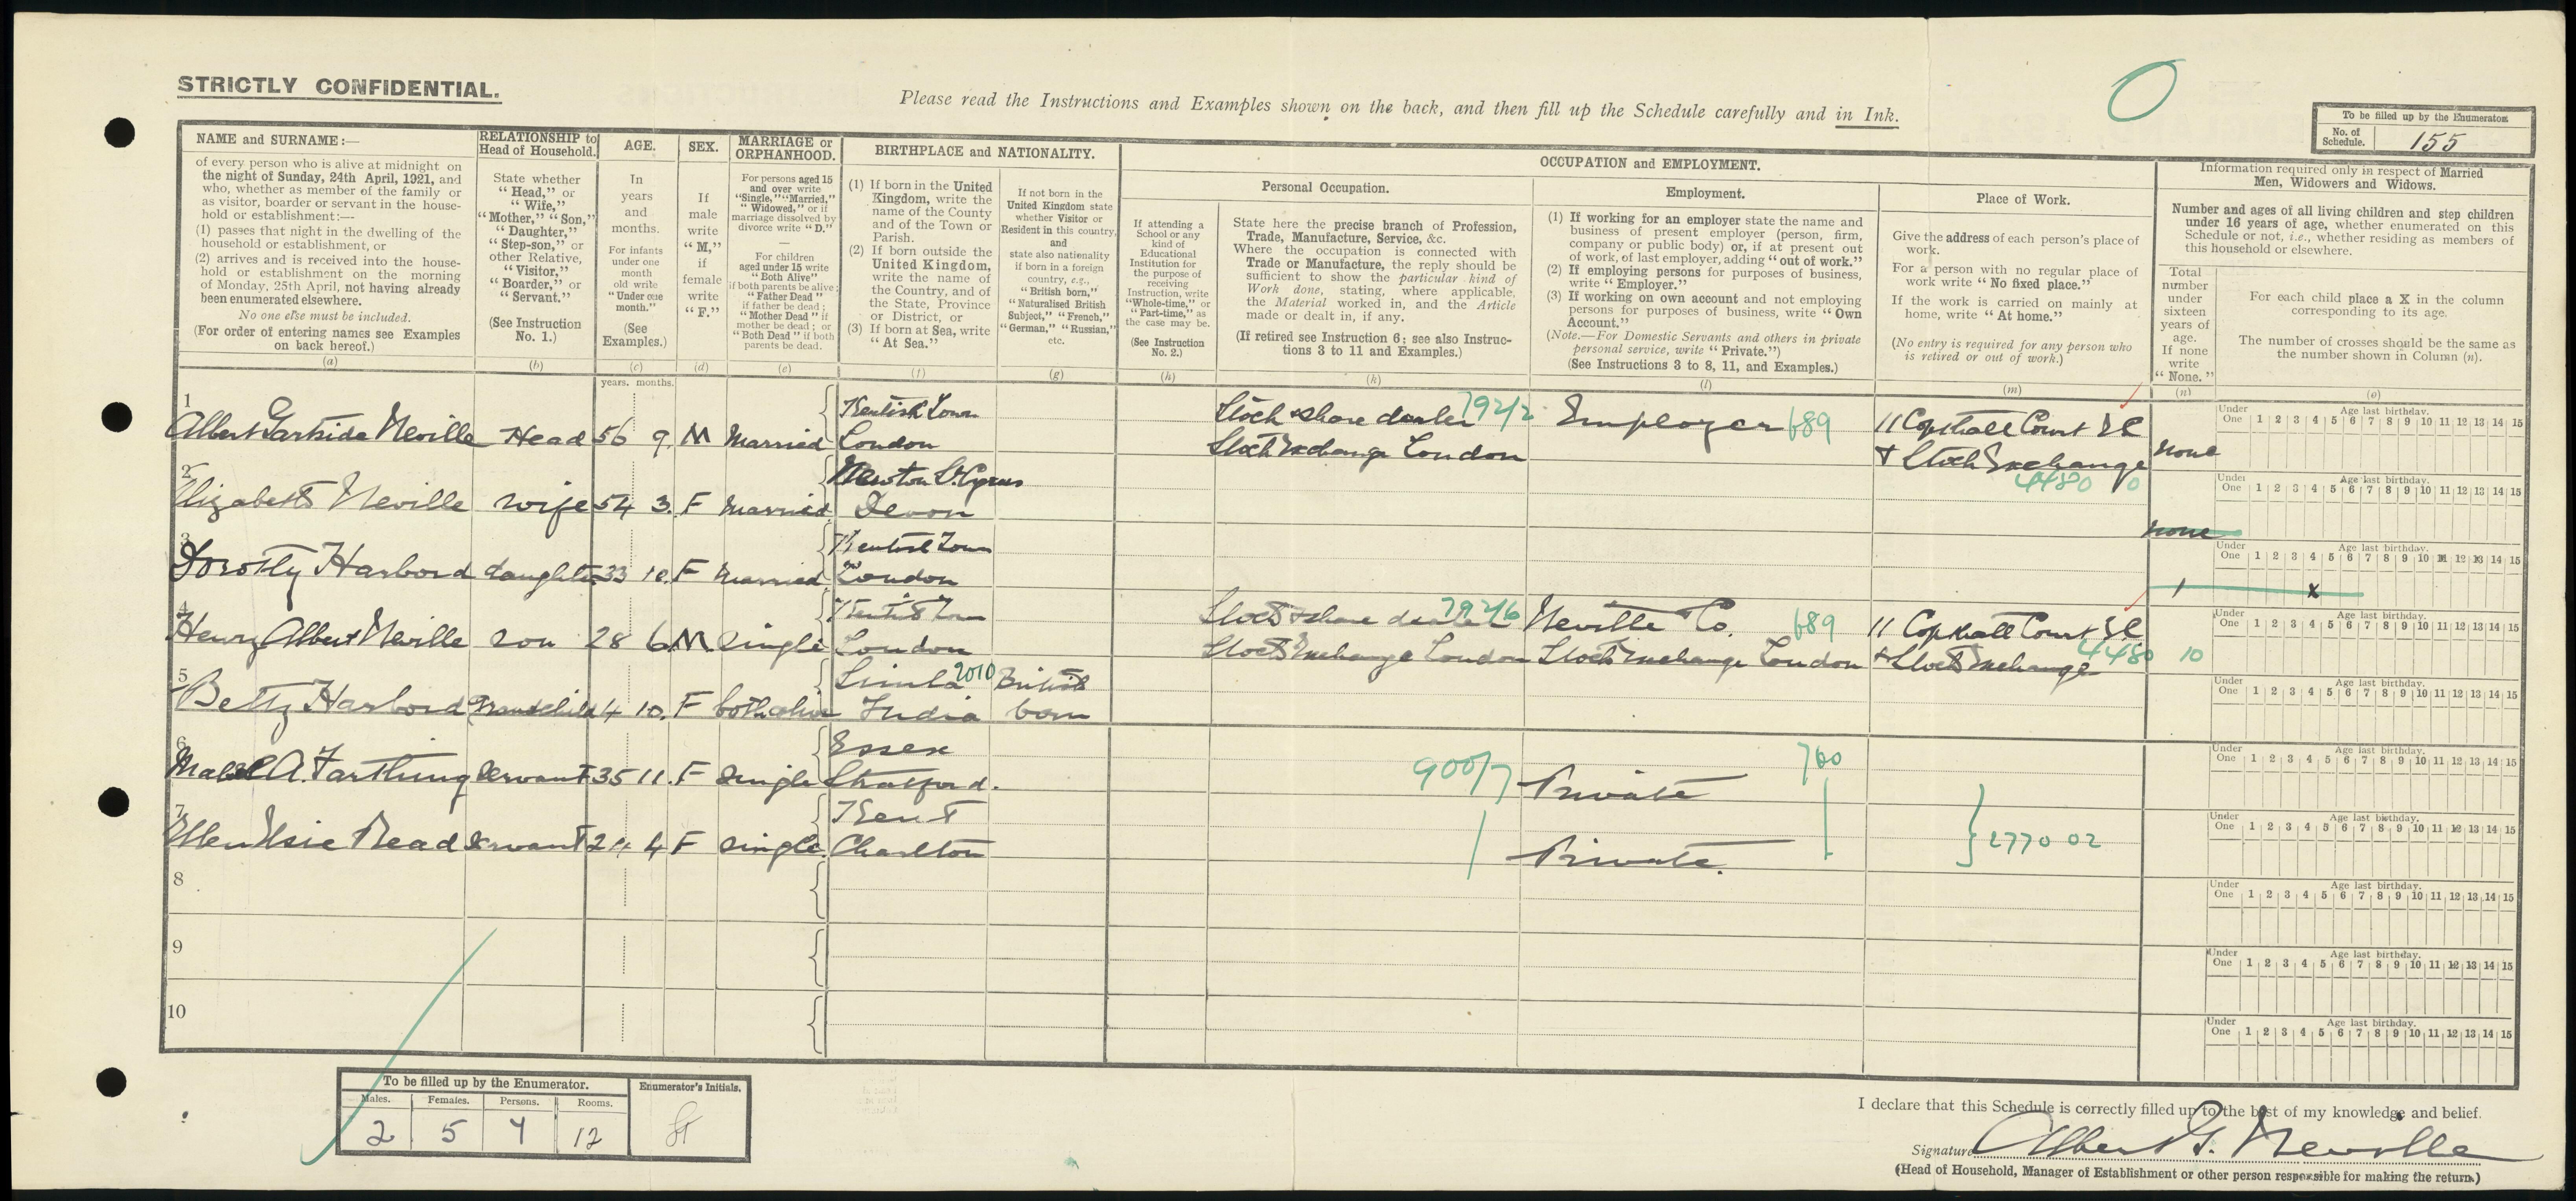 STRICTLY CONFIDENTIAL.
Please read the Instructions and Examples shown on the back, and then fill up the Schedule carefully and in Ink.
To be filled up by the Enumerator.
No. of Schedule. 155
NAME and SURNAME:—
of every person who is alive at midnight on
the night of Sunday, 24th April, 1921, and
who, whether as member of the family or
as visitor, boarder or servant in the house-
hold or establishment:—
(1) passes that night in the dwelling of the
household or establishment, or
(2) arrives and is received into the house-
hold or establishment on the morning
of Monday, 25th April, not having already
been enumerated elsewhere.
No one else must be included.
(For order of entering names see Examples
on back hereof.)
(a)
RELATIONSHIP to
Head of Household.
State whether
"Head," or
"Wife,"
"Mother," "Son,"
"Daughter,"
"Step-son," or
other Relative,
"Visitor,"
"Boarder," or
"Servant."
(See Instruction
No. 1.)
(b)
AGE.
In
years
and
months.
For infants
under one
month
old write
"Under one
month."
(See
Examples.)
(c)
years. months.
SEX.
If
male
write
"M,"
if
female
write
"F."
(d)
MARRIAGE or
ORPHANHOOD.
For persons aged 15
and over write
"Single," "Married,"
"Widowed," or if
marriage dissolved by
divorce write "D."
—
For children
aged under 15 write
"Both Alive"
if both parents be alive;
"Father Dead"
if father be dead;
"Mother Dead" if
mother be dead; or
"Both Dead" if both
parents be dead.
(e)
BIRTHPLACE and NATIONALITY.
(1) If born in the United
Kingdom, write the
name of the County
and of the Town or
Parish.
(2) If born outside the
United Kingdom,
write the name of
the Country, and of
the State, Province
or District, or
(3) If born at Sea, write
"At Sea."
(f)
If not born in the
United Kingdom state
whether Visitor or
Resident in this country,
and
state also nationality
if born in a foreign
country, e.g.,
"British born,"
"Naturalised British
Subject," "French,"
"German," "Russian,"
etc.
(g)
OCCUPATION and EMPLOYMENT.
Personal Occupation.
If attending a
School or any
kind of
Educational
Institution for
the purpose of
receiving
Instruction, write
"Whole-time," or
"Part-time," as
the case may be.
(See Instruction
No. 2.)
(h)
State here the precise branch of Profession,
Trade, Manufacture, Service, &c.
Where the occupation is connected with
Trade or Manufacture, the reply should be
sufficient to show the particular kind of
Work done, stating, where applicable,
the Material worked in, and the Article
made or dealt in, if any.
(If retired see Instruction 6; see also Instruc-
tions 3 to 11 and Examples.)
(k)
Employment.
(1) If working for an employer state the name and
business of present employer (person, firm,
company or public body) or, if at present out
of work, of last employer, adding "out of work."
(2) If employing persons for purposes of business,
write "Employer."
(3) If working on own account and not employing
persons for purposes of business, write "Own
Account."
(Note.—For Domestic Servants and others in private
personal service, write "Private.")
(See Instructions 3 to 8, 11, and Examples.)
(l)
Place of Work.
Give the address of each person's place of
work.
For a person with no regular place of
work write "No fixed place."
If the work is carried on mainly at
home, write "At home."
(No entry is required for any person who
is retired or out of work.)
(m)
Information required only in respect of Married
Men, Widowers and Widows.
Number and ages of all living children and step children
under 16 years of age, whether enumerated on this
Schedule or not, i.e., whether residing as members of
this household or elsewhere.
Total
number
under
sixteen
years of
age.
If none
write
"None."
(n)
For each child place a X in the column
corresponding to its age.
The number of crosses should be the same as
the number shown in Column (n).
(o)
1 Albert Gartside Neville Head 56 9. M Married Kentish Town London
Stock & share dealer 792/2 Stock Exchange London Employer 689
11 Copthall Court EC & Stock Exchange 4480 0 none
Under One 1 2 3 4 5 6 7 8 9 10 11 12 13 14 15 Age last birthday.
2 Elizabeth Neville wife 54 3. F Married Newton St. Cyrus Devon
none
Under One 1 2 3 4 5 6 7 8 9 10 11 12 13 14 15 Age last birthday.
3 Dorothy Harbord daughter 33 10. F Married Kentish Town London
1 x
Under One 1 2 3 4 5 6 7 8 9 10 11 12 13 14 15 Age last birthday.
4 Henry Albert Neville son 28 6 M. single Kentish Town London
Stock & share dealer 792/6 Stock Exchange London Neville & Co. 689 Stock Exchange London
11 Copthall Court EC & Stock Exchange 4480 10
Under One 1 2 3 4 5 6 7 8 9 10 11 12 13 14 15 Age last birthday.
5 Betty Harbord Grandchild 4 10. F both alive Simla 2010 India British born
Under One 1 2 3 4 5 6 7 8 9 10 11 12 13 14 15 Age last birthday.
6 Mabel A. Farthing Servant 35 11. F single Essex Stratford.
900/7 Private 760
Under One 1 2 3 4 5 6 7 8 9 10 11 12 13 14 15 Age last birthday.
7 Ellen Elsie Read Servant 24 4 F single Kent Charlton
Private. 2770 02
Under One 1 2 3 4 5 6 7 8 9 10 11 12 13 14 15 Age last birthday.
8
Under One 1 2 3 4 5 6 7 8 9 10 11 12 13 14 15 Age last birthday.
9
Under One 1 2 3 4 5 6 7 8 9 10 11 12 13 14 15 Age last birthday.
10
Under One 1 2 3 4 5 6 7 8 9 10 11 12 13 14 15 Age last birthday.
To be filled up by the Enumerator.
Males. Females. Persons. Rooms.
2 5 7 12
Enumerator's Initials.
I declare that this Schedule is correctly filled up to the best of my knowledge and belief.
Signature Albert G. Neville
(Head of Household, Manager of Establishment or other person responsible for making the return.)